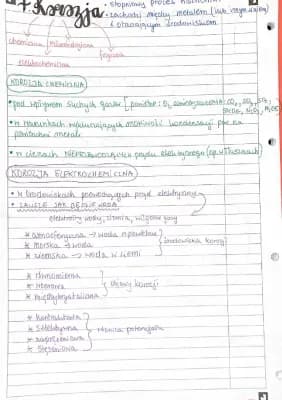 Korozja
• stopniowy proces niszczenia
• zachodzi między metalem (lub
a otaczającym środowiskiem
chemiczna mikrobiologiczna
fizyczna
elektrochemiczna
KOROZJA CHEMICZNA
• pod wpływem suchych gazów (powietrze: O₂ zanieczyszczenia: CO₂, SO₂
• w warunkach możliwość kondensacji pary na
powierzchni metali
• w cieczach prądu elektrycznego (np. w
KOROZJA ELEKTROCHEMICZNA
• w środowiskach przewodzących prąd elektryczny
• ZAWSZE JAK BĘDZIE WODA
elektrolity wodne, ziemia, wilgotne gazy
* atmosferyczna → woda z powietrza
* morska → woda
* ziemska → woda w ziemi
środowiska korozji
* równomierna
* międzykrystaliczna
korozji
* kontaktowa
* selektywna
* naprężeniowa
różnica potencjałów